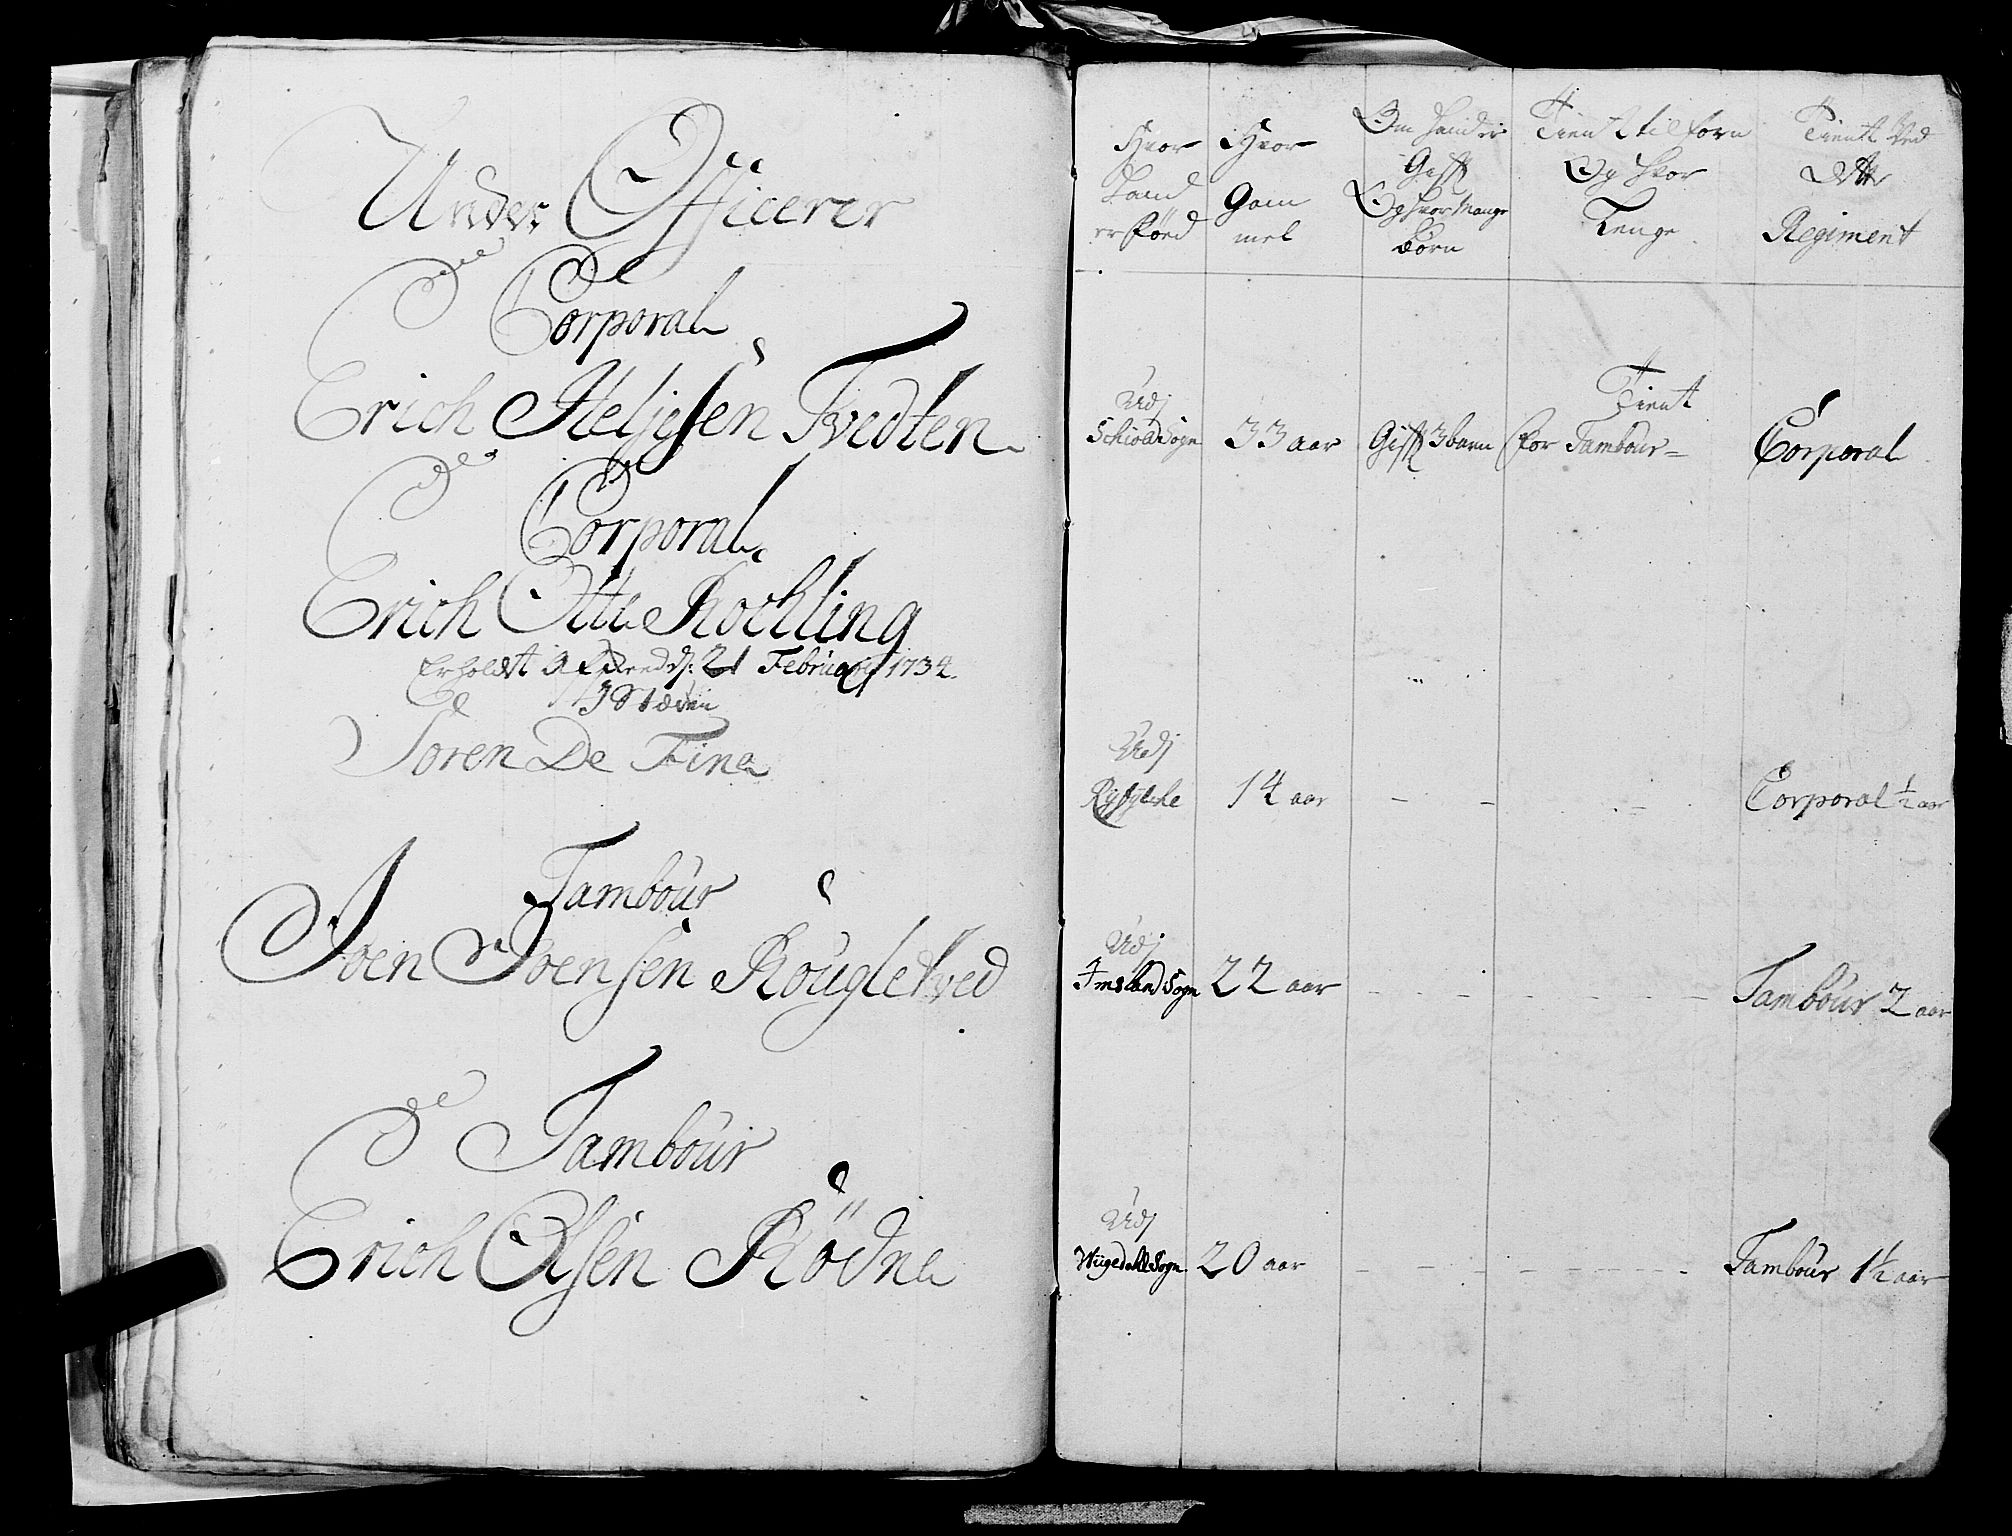 Under Officerer
Corporal
Erich Helgesen Tvedten
Corporal
Erich Otte Kochling
Erholdt Afskeed d: 21 Februarij 1734.
I Stæden
Sören De Fine
Tambour
Joen Joensen Rougletved
Tambour
Erich Olsen Rödne
Hvor Land er föed
Hvor Gam mel
Om hand er Gift Og hvor Mange Börn
Tient tilforn Og hvor Lenge
Tient Ved Dette Regiment
Udj Schiold Sogn
33 aar
Gift 3 barn
Tient for Tambour =
Corporal
Udj Ryfylche
14 aar
– – –
Corporal ½ aar
Udj Imsland Sogn
22 aar
– – – – – –
Tambour 2 aar
Udj Wigedahl Sogn
20 aar
– – – – – –
Tambour 1½ aar